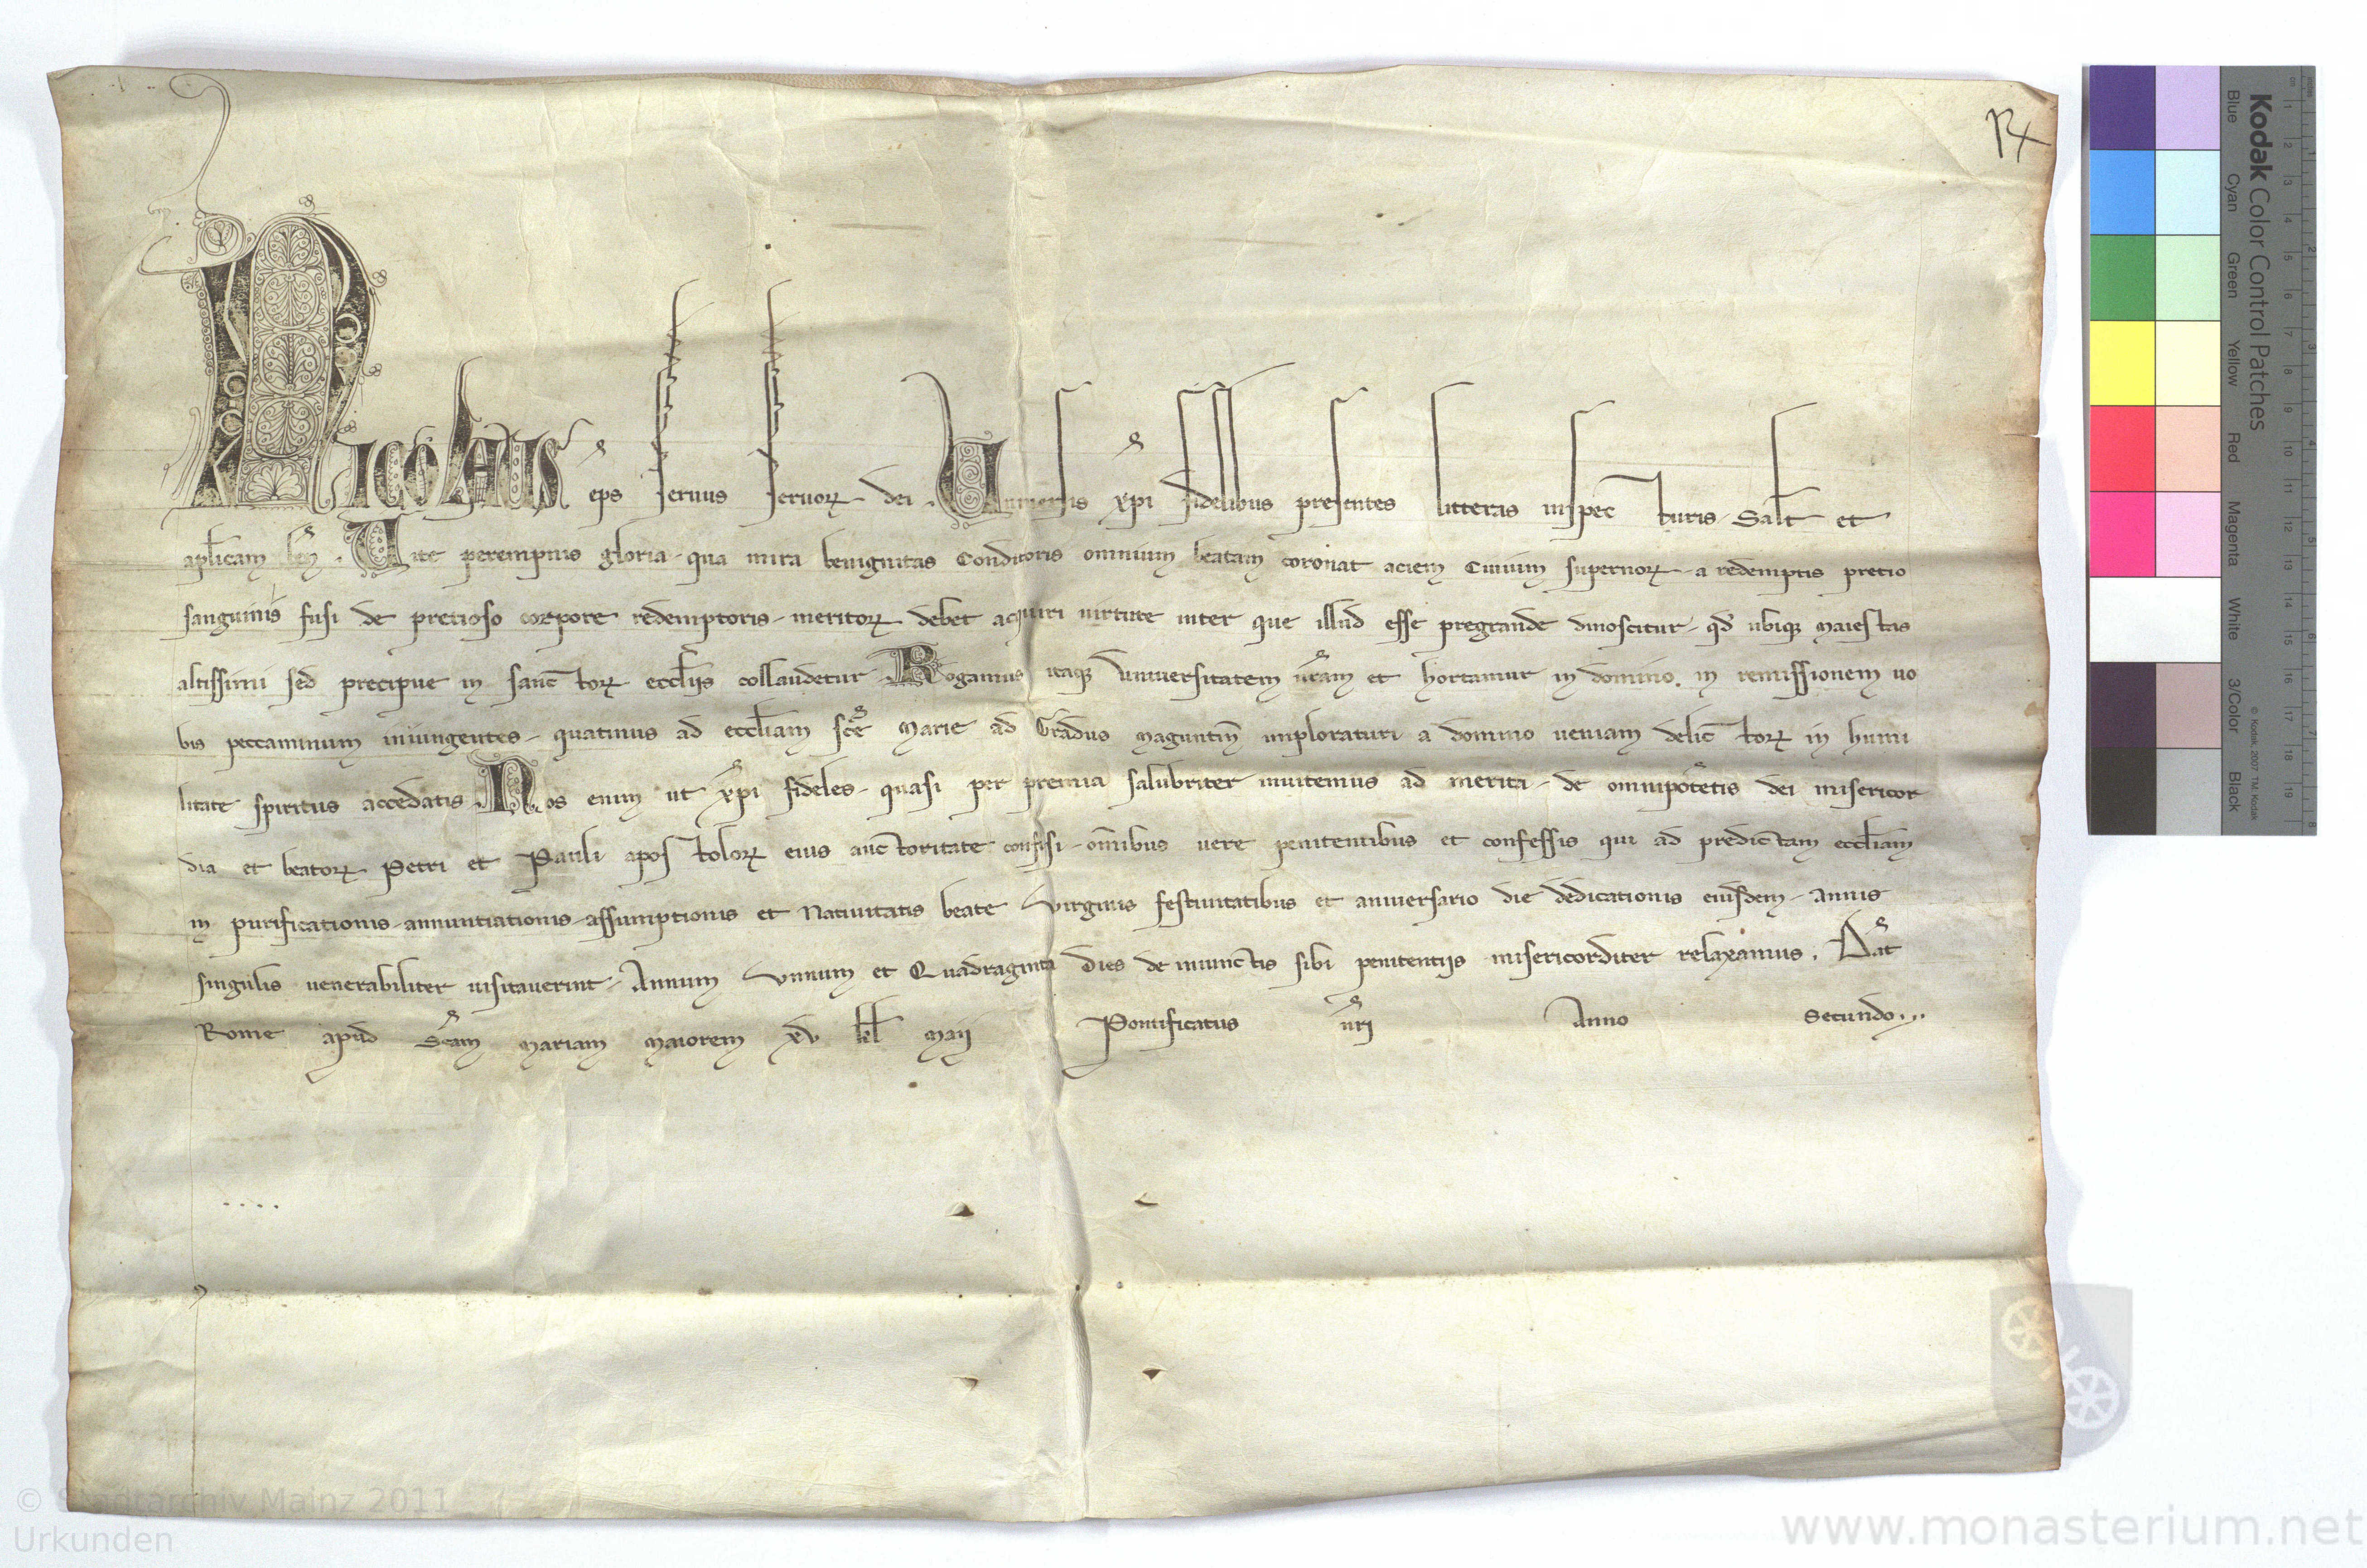 Rx
Nicolaus eps seruus seruoꝝ dei. Uniuersis xp̄i fidelibus presentes litteras inspecturis. Salt̄ et
aplicam beñ. Uite perempnis gloria qua mira benignitas Conditoris omnium beatam coronat aciem Ciuium supernoꝝ a redemptis pretio
sanguinis fusi de pretioso corpore redemptoris meritoꝝ debet acquiri uirtute inter que illud esse pregrande dinoscitur qđ ubiqꝫ Maiestas
altissimi sed precipue in sanctoꝝ eccliis collaudetur. Rogamus itaqꝫ Uniuersitatem ur̄am et hortamur in domino. in remissionem uo
bis peccaminum iniungentes quatinus ad eccliam sc̄e Marie ad Gradus Maguntiñ imploraturi a domino ueniam delictoꝝ in humi
litate spiritus accedatis. Nos enim ut xp̄i fideles quasi per premia salubriter inuitemus ad merita de omnipot̄etis dei misericor
dia et beatoꝝ Petri et Pauli apostoloꝝ eius auctoritate confisi om̄ibus uere penitentibus et confessis qui ad predictam eccliam
in purificationis annuntiationis assumptionis et Natiuitatis beate Uirginis festiuitatibus et aniuersario die dedicationis eiusdem annis
singulis uenerabiliter uisitauerint. Annum Unnum et Quadraginta Dies de iniunctis sibi penitentiis misericorditer relaxamus. Dat̄
Rome apud Sc̄am Mariam Maiorem xv kl Maij Pontificatus nr̄i Anno Secundo...
....
Kodak Color Control Patches
Blue Cyan Green Yellow Red Magenta White 3/Color Black
© Kodak, 2007 TM: Kodak
inches 1 2 3 4 5 6 7 8
cm 1 2 3 4 5 6 7 8 9 10 11 12 13 14 15 16 17 18 19
© Stadtarchiv Mainz 2011
Urkunden
www.monasterium.net